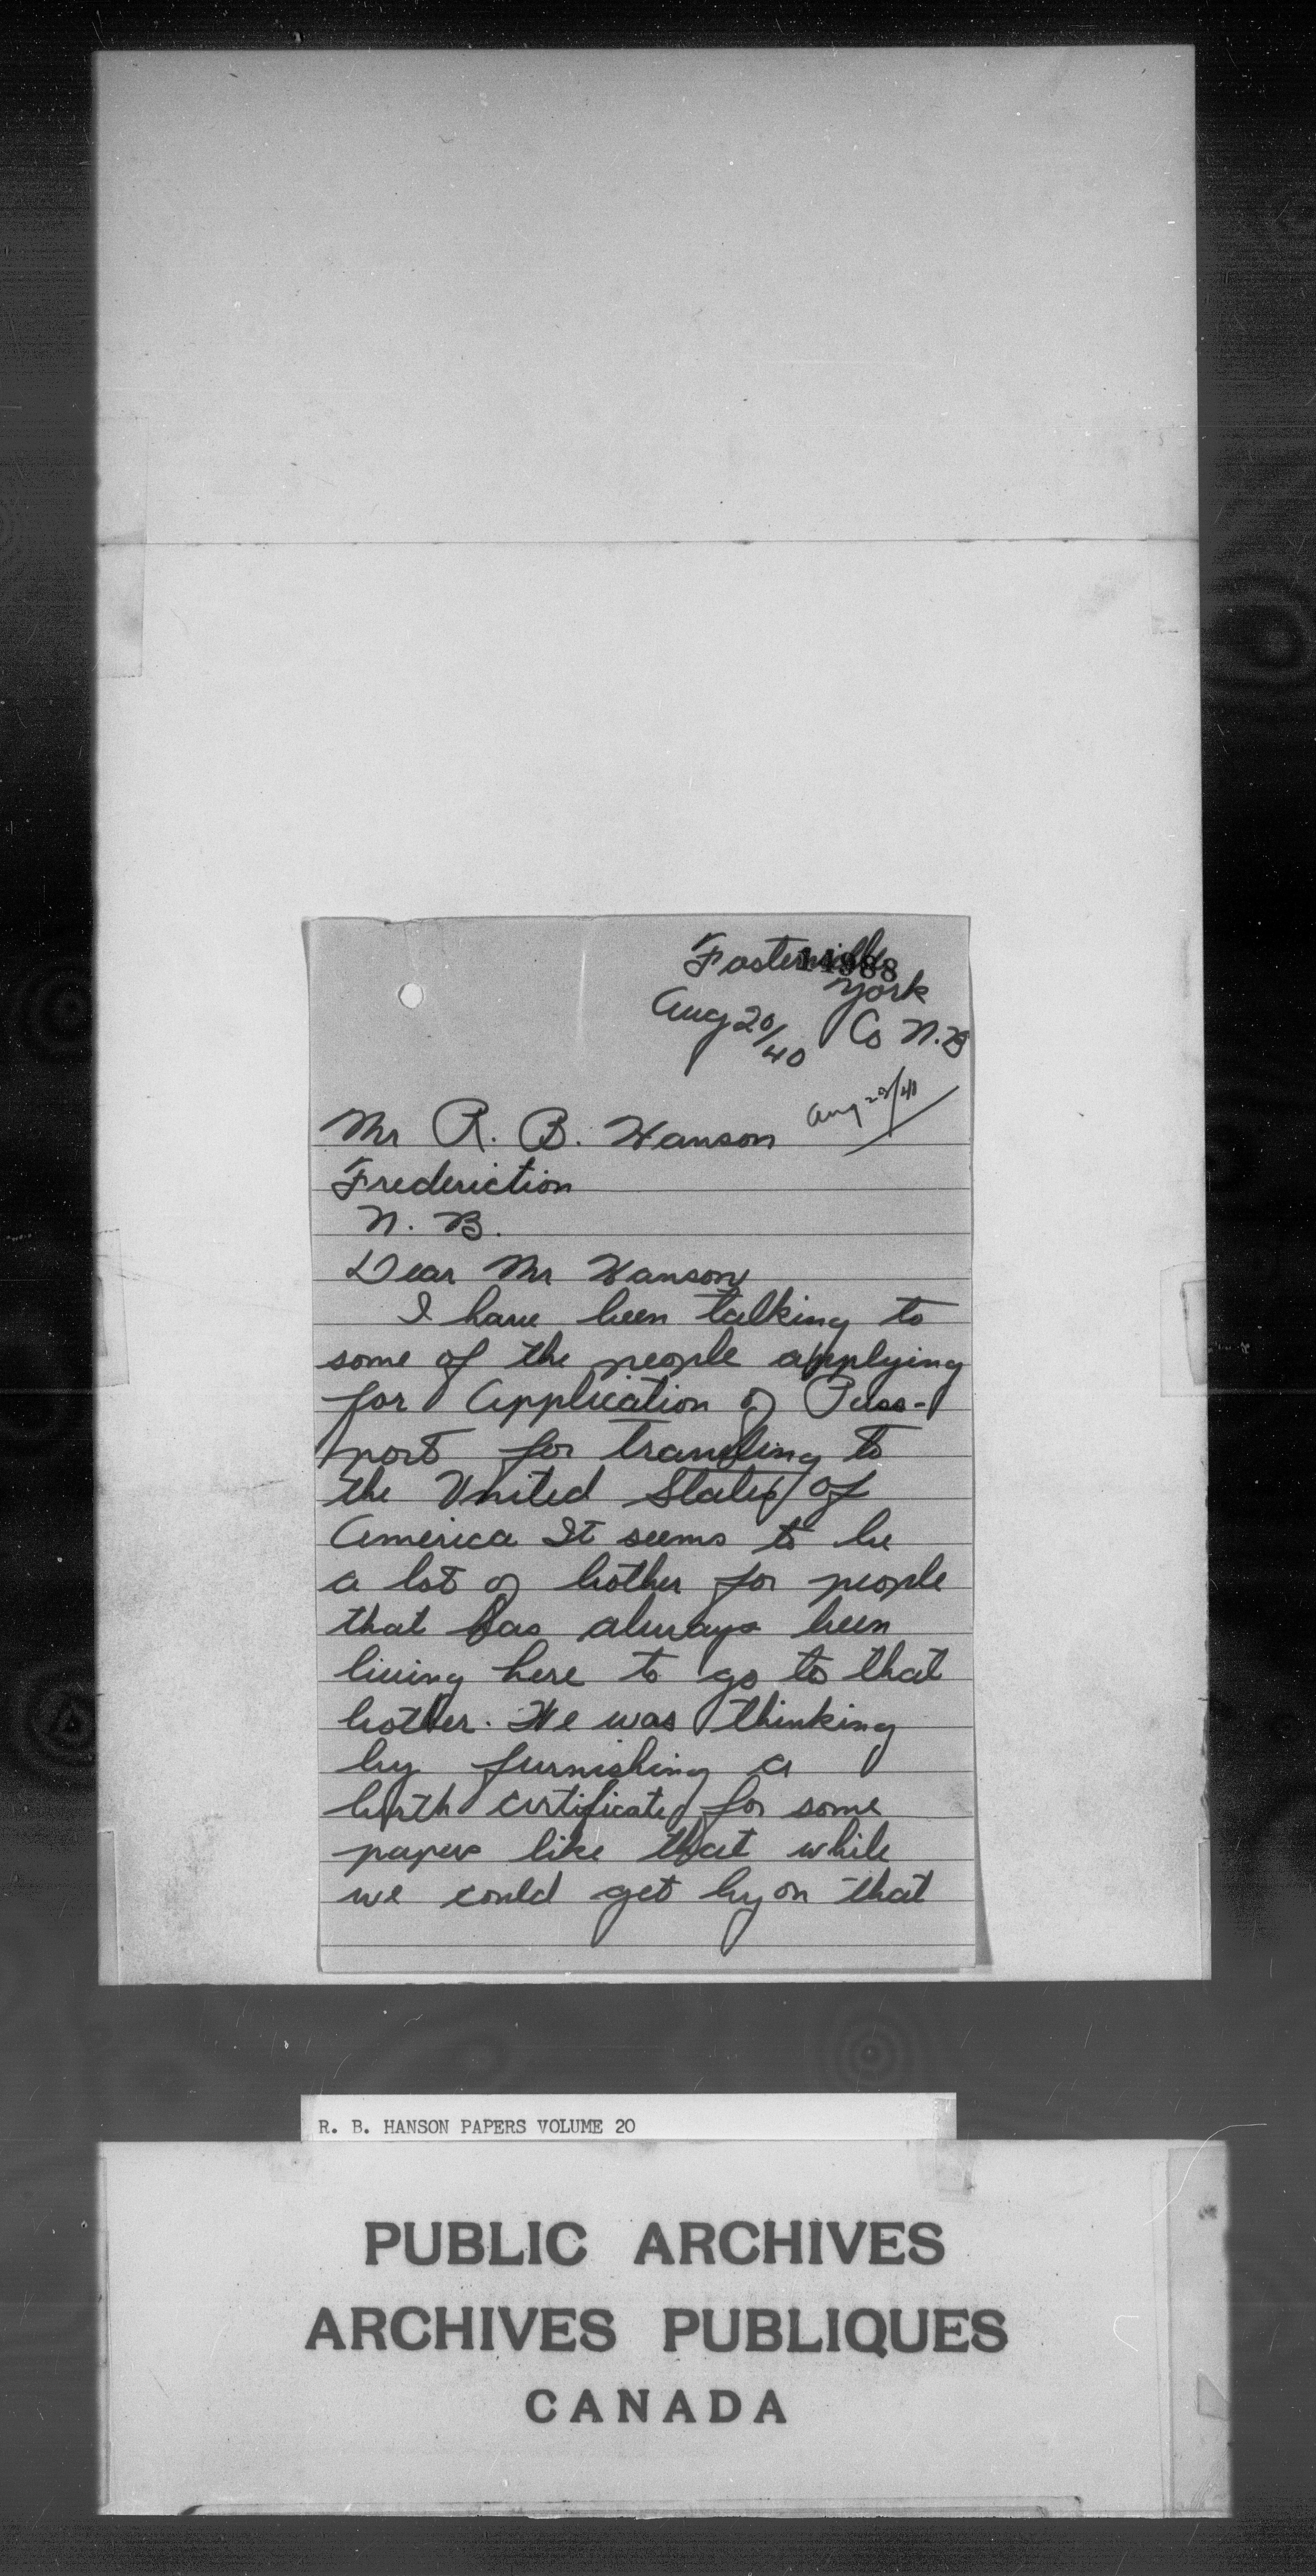 Fosterville
14988
York
Aug 20/40 Co N.B
Aug 23/40
Mr R. B. Hanson
Frederiction
N. B.
Dear Mr Hanson
I have been talking to
some of the people applying
for Application of Pass-
port for traveling to
the United States of
America It seems to be
a lot of bother for people
that has always been
living here to go to that
bother. We was thinking
by furnishing a
birth certificate for some
papers like that while
we could get by on that
R. B. HANSON PAPERS VOLUME 20
PUBLIC ARCHIVES
ARCHIVES PUBLIQUES
CANADA